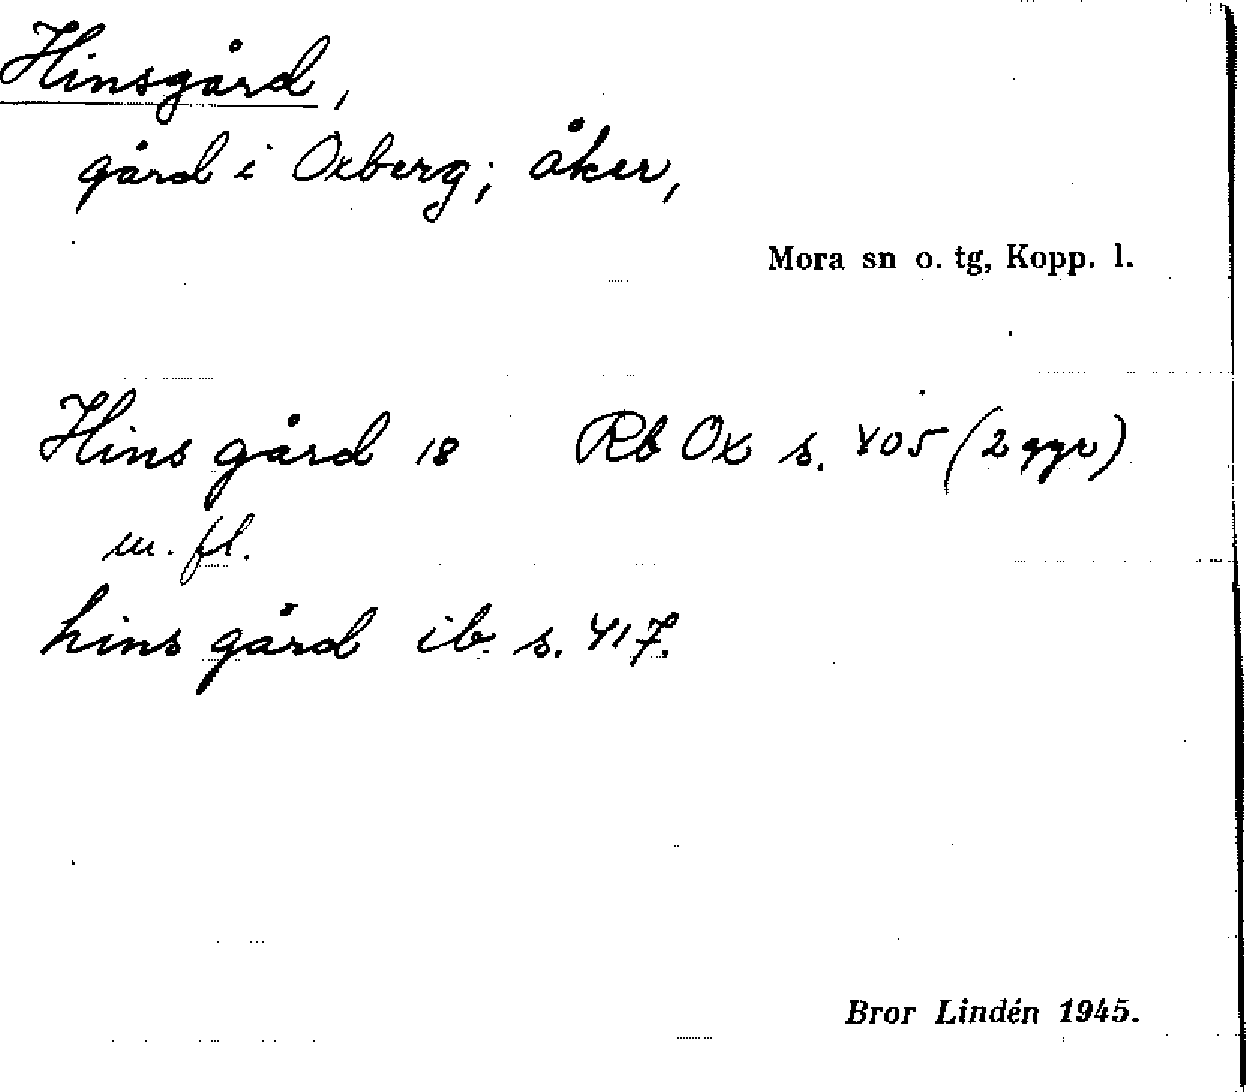 Hinsgård,
gård i Oxberg; åker,
Mora sn o. tg, Kopp. l.
Hins gård 18 Rb Ox s. 405 (2 ggr)
m. fl.
hins gård ib. s. 417.
Bror Lindén 1945.